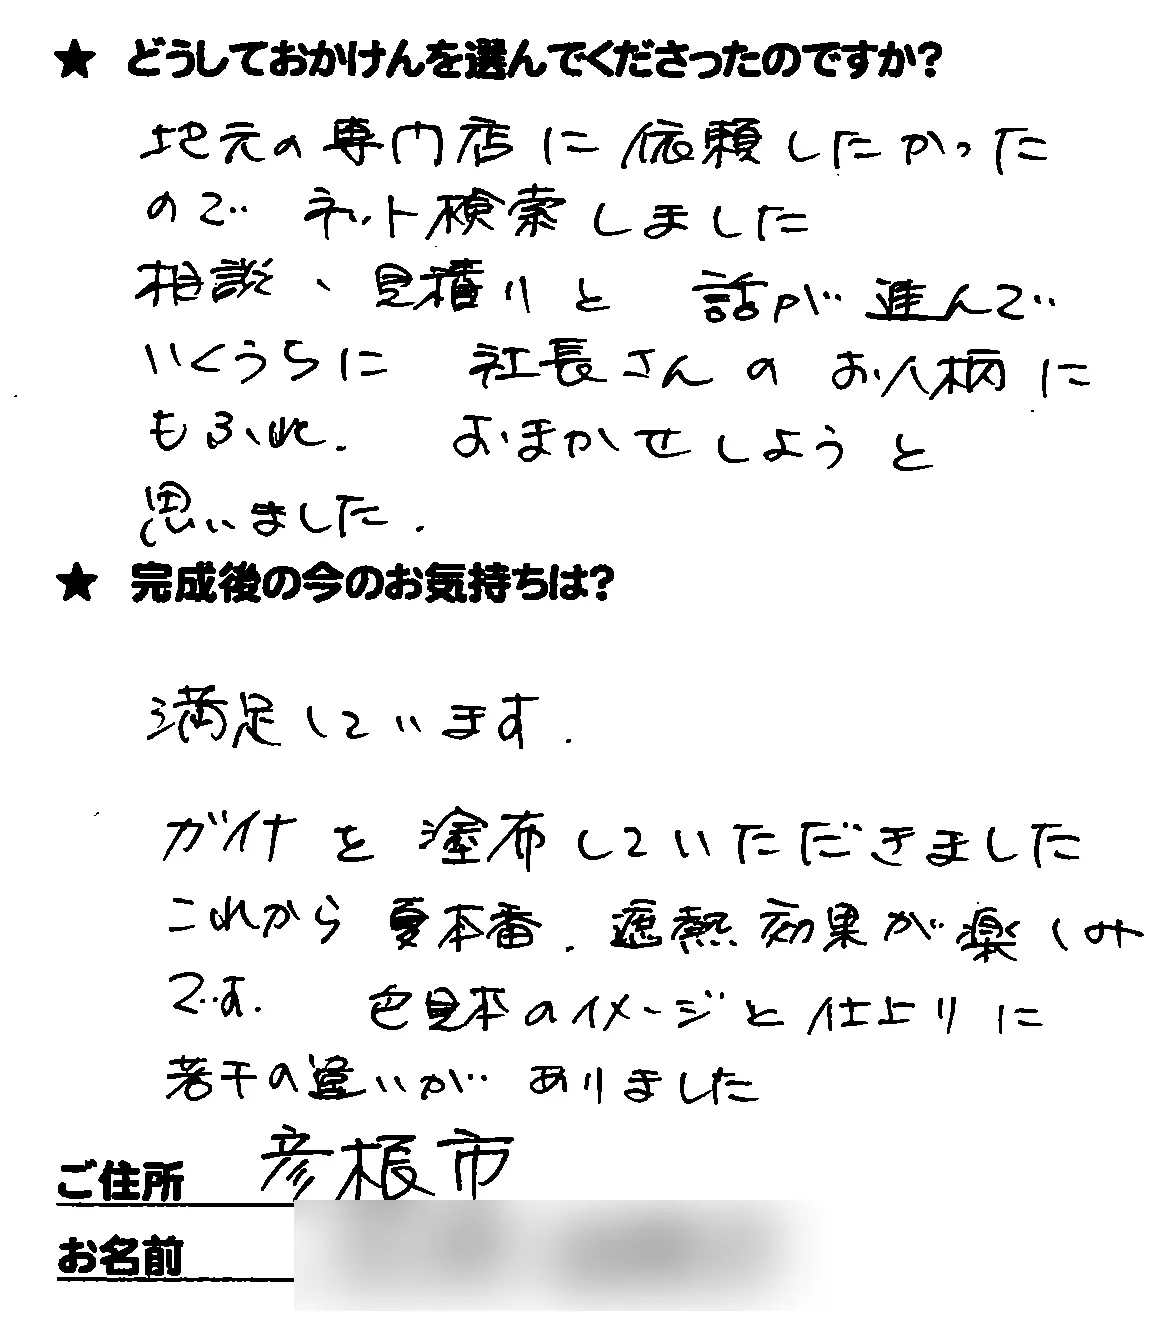 ★ どうしておかけんを選んでくださったのですか?
地元の専門店に依頼したかった
ので ネット検索しました
相談、見積りと 話が進んで
いくうちに 社長さんのお人柄に
もふれ. おまかせしようと
思いました.
★ 完成後の今のお気持ちは?
満足しています.
ガイナを塗布していただきました
これから夏本番. 遮熱効果が楽しみ
です. 色見本のイメージと仕上りに
若干の違いが ありました
ご住所 彦根市
お名前